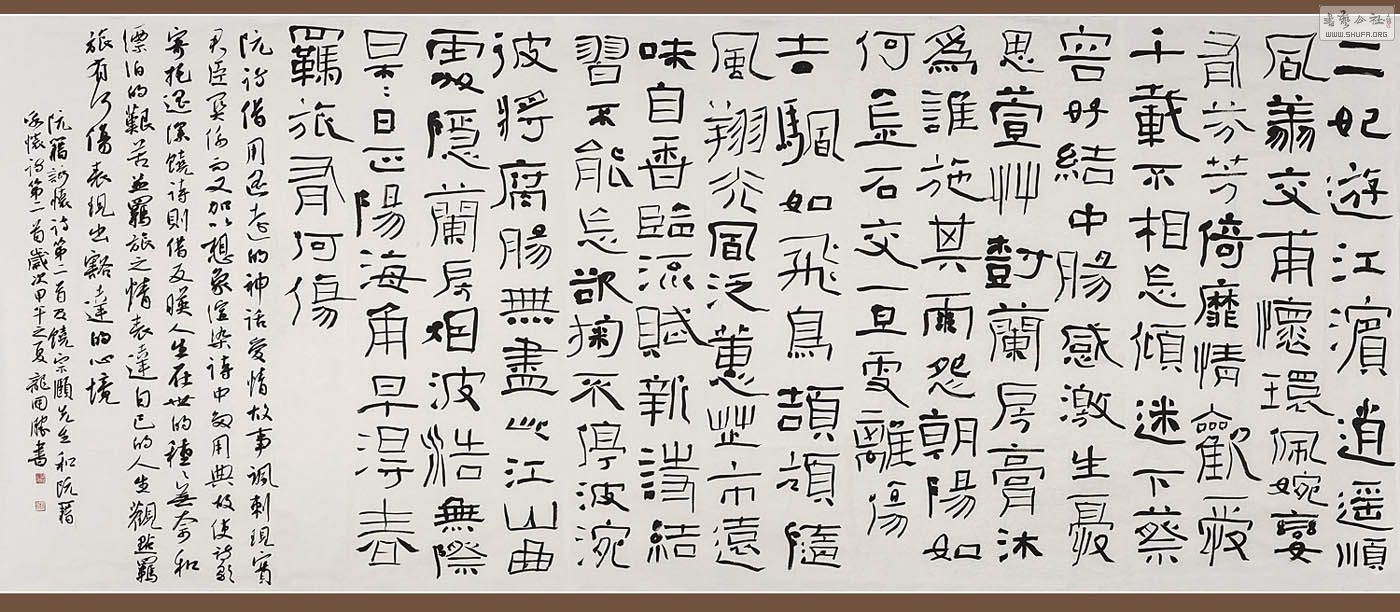 二妃遊江濱逍遥順
風翔交甫懷環佩婉孌
有芬芳倚靡情歡愛
千載不相忘傾迷下蔡
容好結中腸感激生憂
思萱艸樹蘭房膏沐
爲誰施其雨怨朝陽如
何金石交一旦更離傷
吉騆如飛鳥頡頏隨
風翔光風泛蕙芷市遠
味自香臨流賦新詩結
習不能忘欲掬不停波涴
彼將腐腸無盡此江山曲
處隱蘭房烟波浩無際
杲々日正陽海角早得春
羈旅有何傷
阮詩借用過去的神話愛情故事諷刺現實
君臣關係而又加以想象渲染詩中多用典故使詩歌
寄托遥深饒詩則借反映人生在世的種種無奈和
漂泊的艱苦並羈旅之情表達自己的人生觀點羈
旅有何傷表現出豁達的心境
阮籍詠懷詩第二首及饒宗頤先生和阮籍
詠懷詩第二首歲次甲午之夏龍開勝書
书艺公社
WWW.SHUFA.ORG